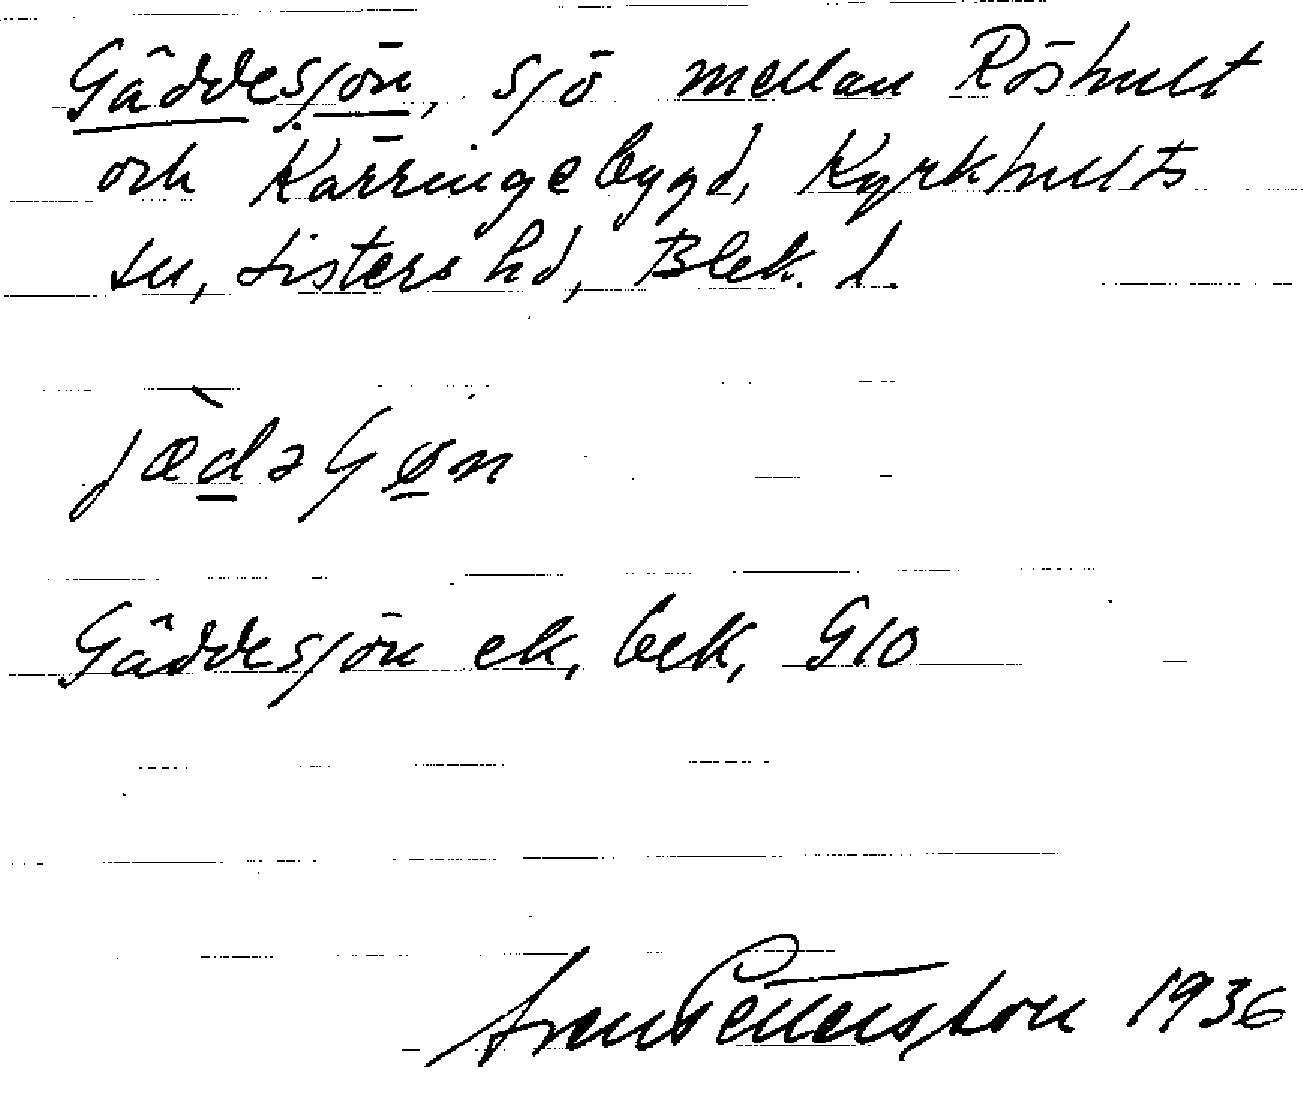 Gäddesjön, sjö mellan Röshult
och Kärringebygd, Kyrkhults
sn, Listers hd, Blek. l.
Gäddesjön ek, bek, G10
Sven Petterson 1936